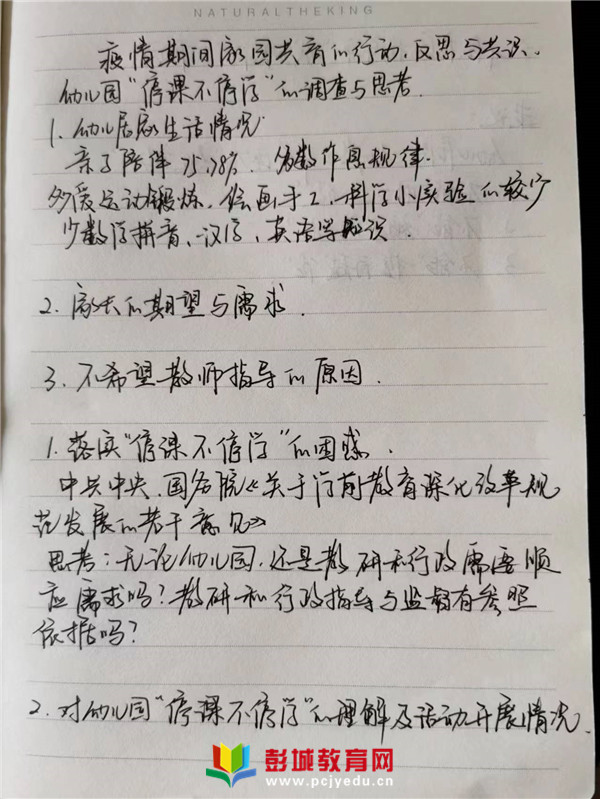 NATURALTHEKING
疫情期间家园共育的行动、反思与共识.
幼儿园“停课不停学”的调查与思考.
1. 幼儿居家生活情况
亲子陪伴75.78%. 多数作息规律.
多爱运动锻炼. 绘画手工. 科学小实验的较少
少数学拼音、汉字、英语学知识.
2. 家长的期望与需求.
3. 不希望教师指导的原因.
1. 落实“停课不停学”的困惑.
中共中央. 国务院《关于学前教育深化改革规
范发展的若干意见》
思考：无论幼儿园, 还是教研和行政需要顺
应需求吗？教研和行政指导与监督有参照
依据吗？
2. 对幼儿园“停课不停学”的理解及活动开展情况.
彭城教育网
www.pcjyedu.cn